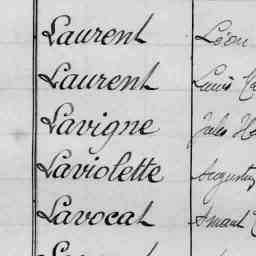 Laurent Léon
Laurent Louis
Lavigne Jules
Laviolette Augustin
Lavocat Amant